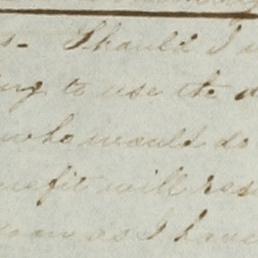 s. Should I
ing to use the
who would do
nefit will res
soon as I have